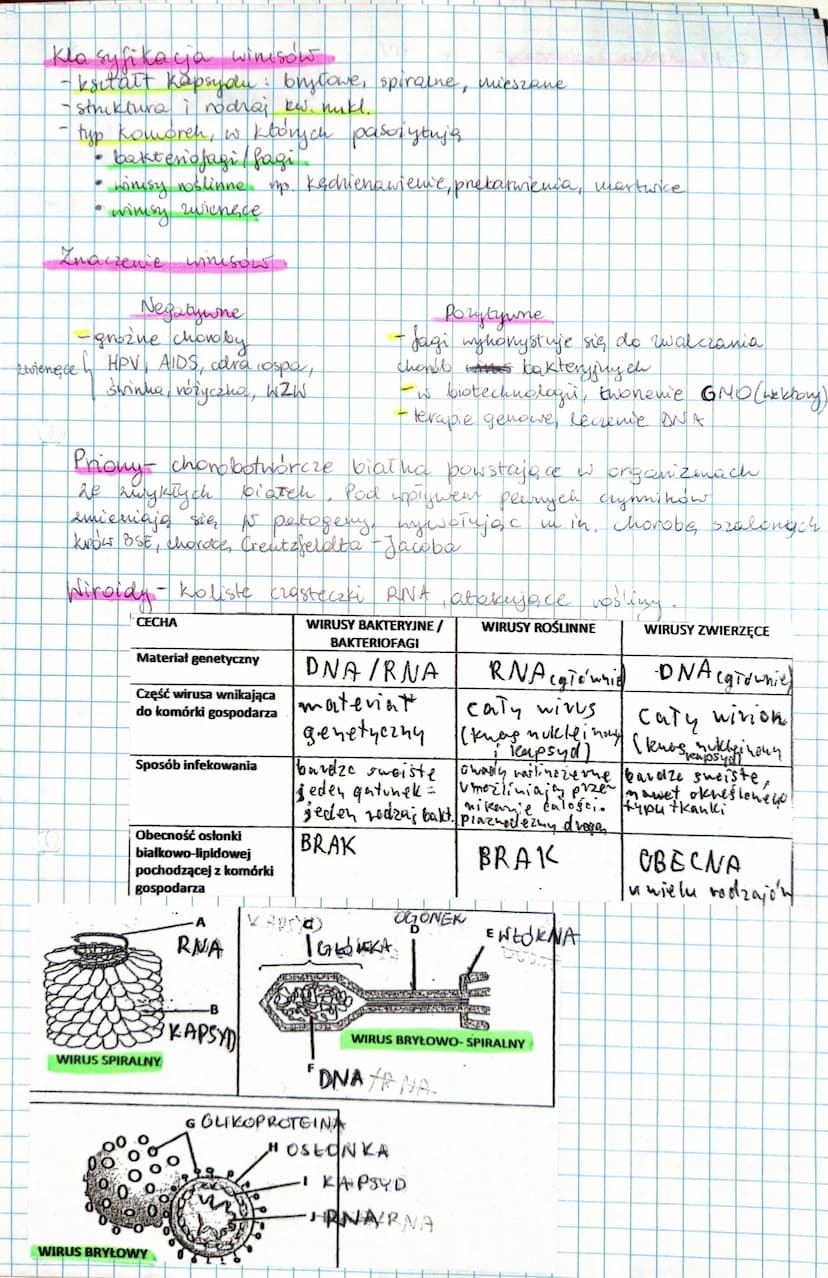 Klasyfikacja wirusów
- kształt kapsydu: bryłowe, spiralne, mieszane
- struktura i rodzaj kw. nukl.
- typ komórek, w których pasożytują
• bakteriofagi/fagi
• wirusy roślinne np. kędzierzawienie, przebarwienia, martwice
• wirusy zwierzęce
Znaczenie wirusów
Negatywne
- groźne choroby
zwierzęce { HPV, AIDS, odra, ospa,
świnka, różyczka, WZW
Pozytywne
- fagi wykorzystuje się do zwalczania
chorób bakteryjnych
- w biotechnologii, tworzenie GMO (wektory)
- terapie genowe, leczenie DNA
Priony - chorobotwórcze białka powstające w organizmach
ze zwykłych białek. Pod wpływem pewnych czynników
zmieniają się w patogeny, wywołując m.in. chorobę szalonych
krów BSE, chorobę Creutzfeldta - Jacoba
Wiroidy - koliste cząsteczki RNA, atakujące rośliny.
CECHA WIRUSY BAKTERYJNE / WIRUSY ROŚLINNE WIRUSY ZWIERZĘCE
BAKTERIOFAGI
Materiał genetyczny DNA/RNA RNA (głównie) DNA (głównie)
Część wirusa wnikająca
do komórki gospodarza
materiał
genetyczny
cały wirus
(kwas nukleinowy
i kapsyd)
cały wirion
(kwas nukleinowy
kapsyd)
Sposób infekowania
bardzo swoiste
jeden gatunek =
jeden rodzaj bakt.
owady roślinożerne
umożliwiają prze-
nikanie całości.
bardzo swoiste,
nawet określonego
typu tkanki
Obecność osłonki
białkowo-lipidowej
pochodzącej z komórki
gospodarza
BRAK
BRAK
OBECNA
u wielu rodzajów
A
RNA
B
KAPSYD
WIRUS SPIRALNY
KAPSYD
C
GŁÓWKA
OGONEK
D
E WŁÓKNA
WIRUS BRYŁOWO- SPIRALNY
F DNA/RNA
G GLIKOPROTEINA
H OSŁONKA
I KAPSYD
J RNA/RNA
WIRUS BRYŁOWY